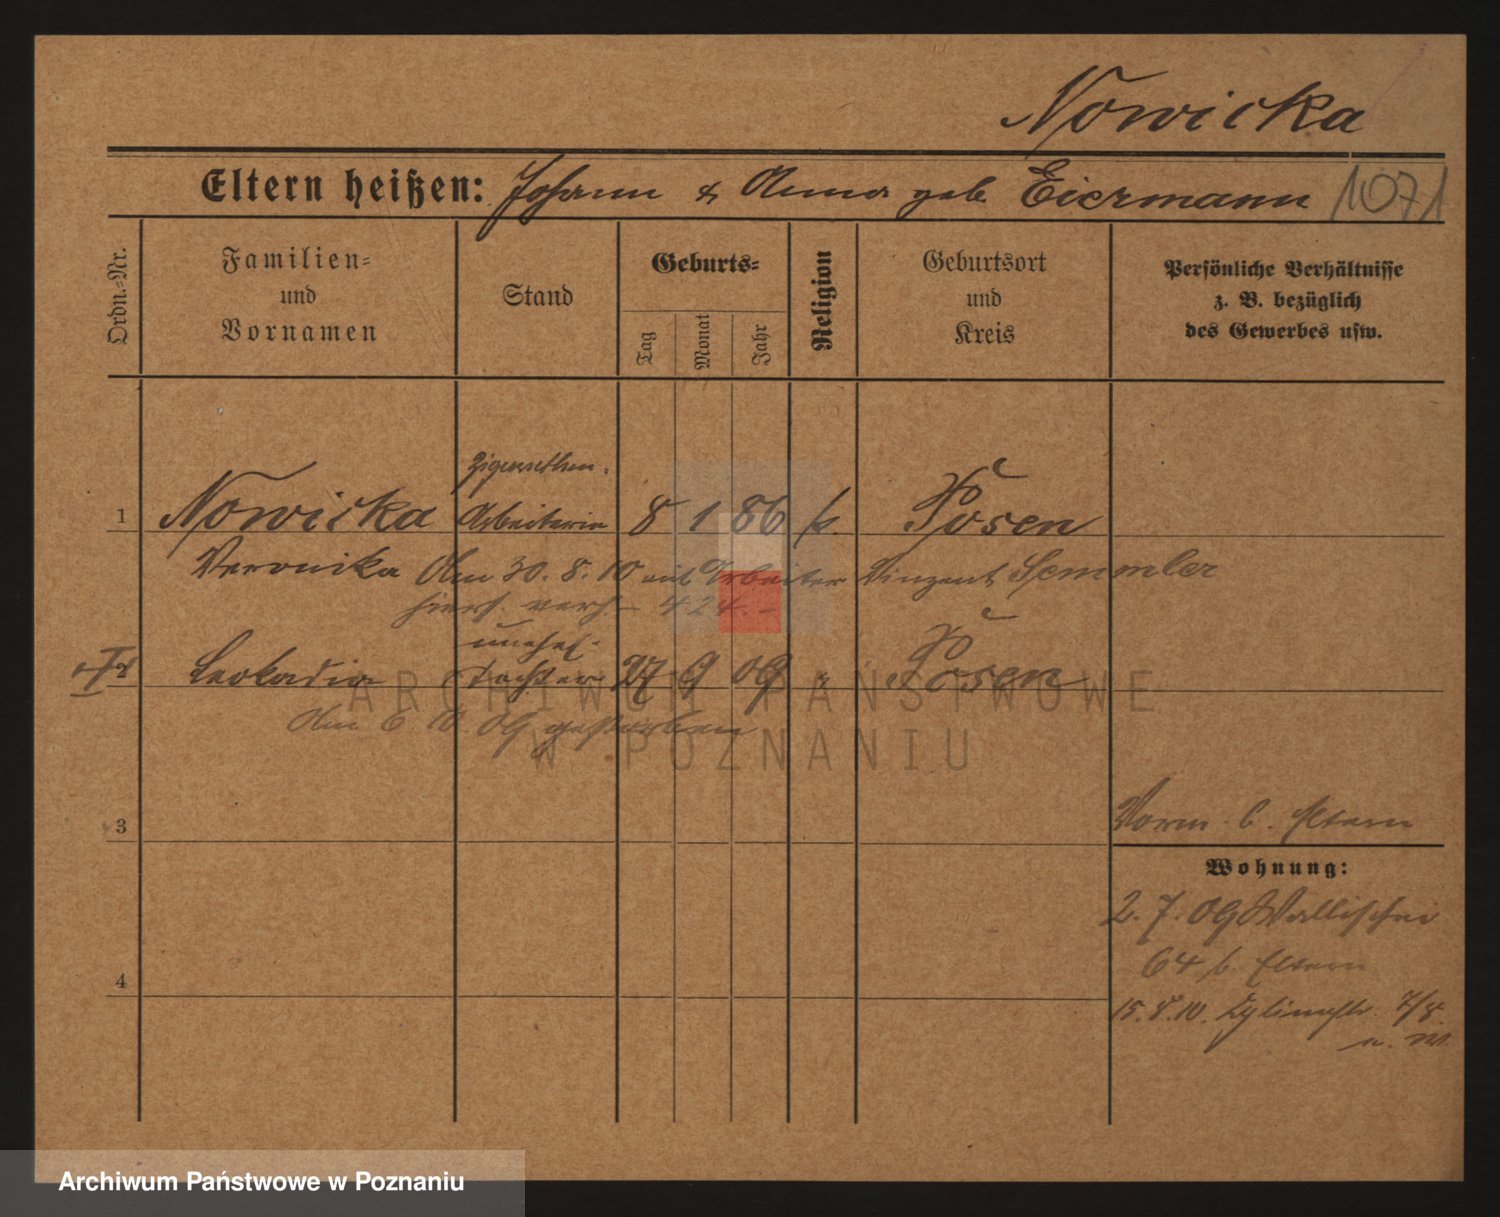 Nowicka
Eltern heißen: Johann & Anna geb Eiermann 1071
Ordn.-Nr.
Familien-
und
Vornamen
Stand
Geburts-
Tag
Monat
Jahr
Religion
Geburtsort
und
Kreis
Persönliche Verhältnisse
z. B. bezüglich
des Gewerbes usw.
Zigaretten-
1 Nowicka Arbeiterin 8 1 86 k. Posen
Veronika Am 30. 8. 10 mit Arbeiter Vinzent Semmler
hiers. verh. 424.
unehel.
2 Leokadia Tochter 27 9 09 " Posen
Am 6. 10. 09 gestorben
ARCHIWUM PAŃSTWOWE
W POZNANIU
3
Vorm. b. Eltern
Wohnung:
2. 7. 09 Wallischei
64 b. Eltern
4
15. 8. 10. 7/8
Archiwum Państwowe w Poznaniu